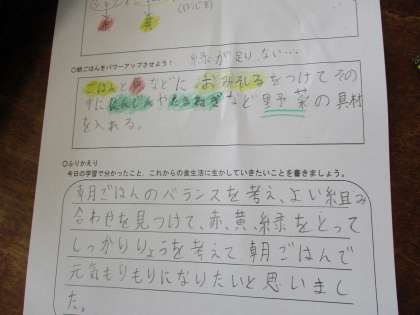 赤 黄
緑が足りない…
○朝ごはんをパワーアップさせよう！
ごはんと魚などに、おみそしるをつけてその
中ににんじんやたまねぎなど野菜の具材
を入れる。
○ふりかえり
今日の学習で分かったこと、これからの食生活に生かしていきたいことを書きましょう。
朝ごはんのバランスを考え、よい組み
合わせを見つけて、赤、黄、緑をとって
しっかりりょうを考えて朝ごはんで
元気もりもりになりたいと思いまし
た。